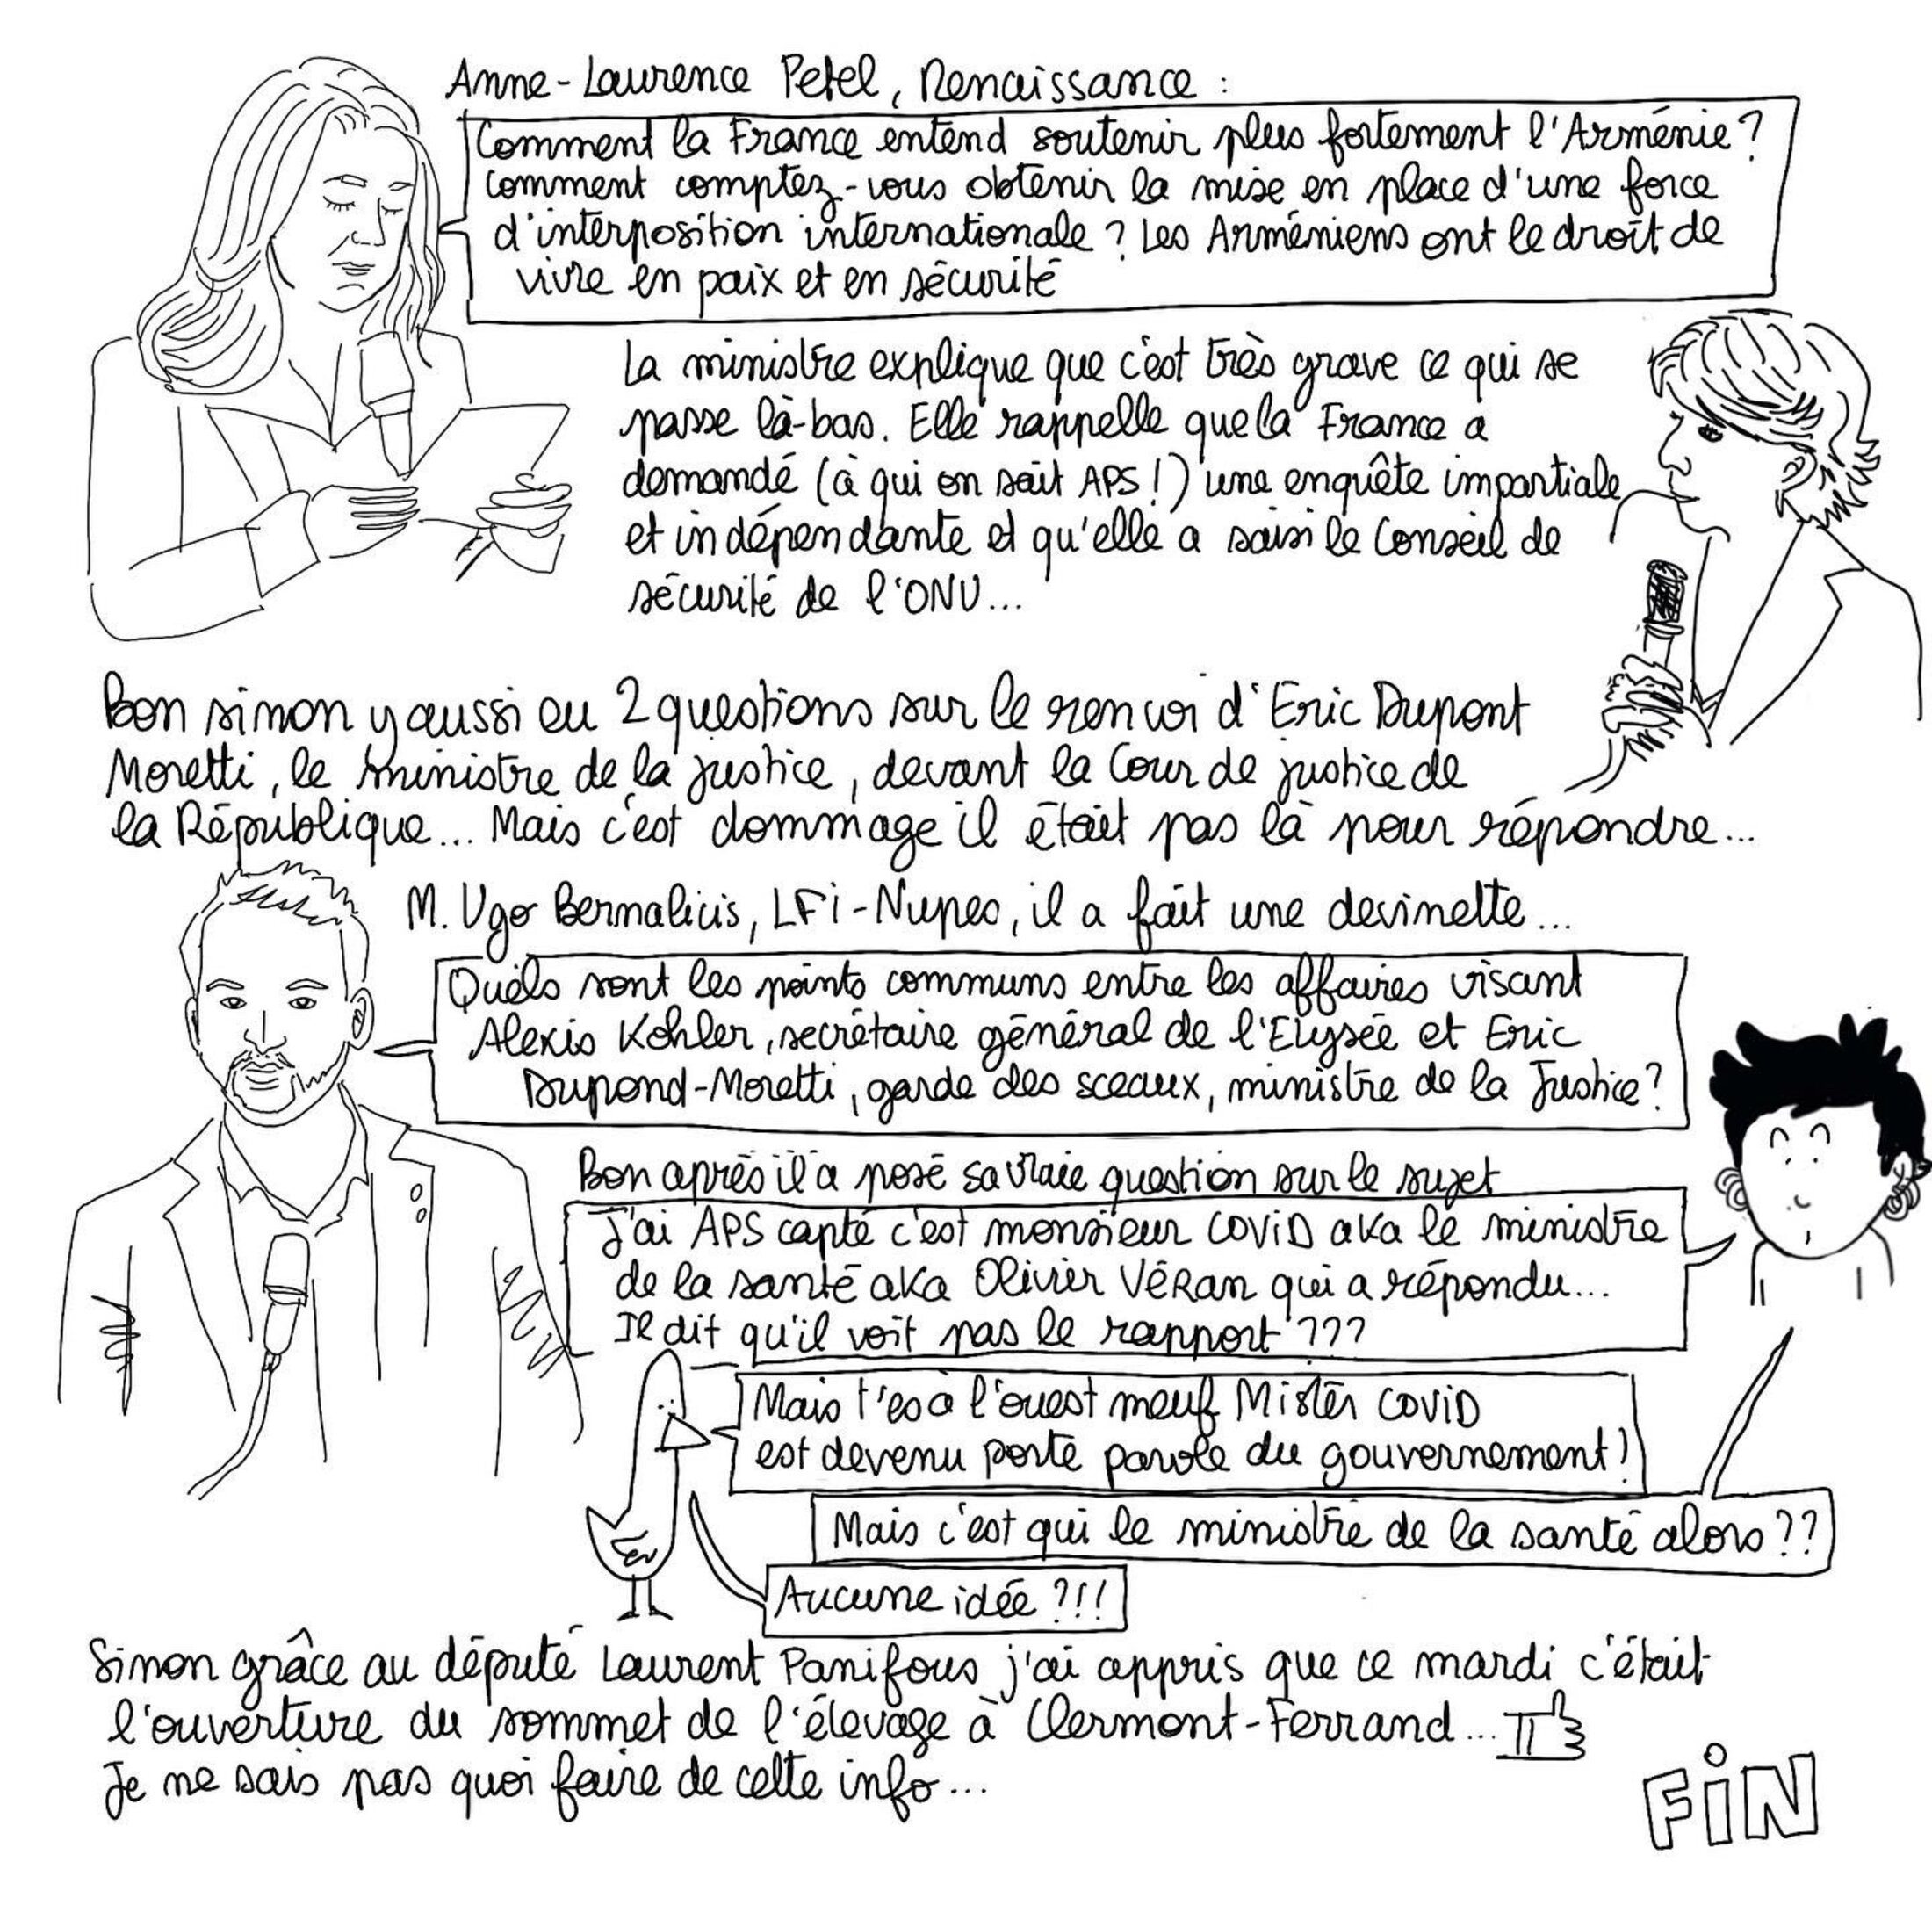 Anne-Laurence Petel, Renaissance :
Comment la France entend soutenir plus fortement l'Arménie ?
Comment comptez-vous obtenir la mise en place d'une force
d'interposition internationale ? Les Arméniens ont le droit de
vivre en paix et en sécurité
La ministre explique que c'est très grave ce qui se
passe là-bas. Elle rappelle que la France a
demandé (à qui on sait APS !) une enquête impartiale
et indépendante et qu'elle a saisi le Conseil de
sécurité de l'ONU...
Bon sinon y aussi eu 2 questions sur le renvoi d'Eric Dupont
Moretti, le ministre de la justice, devant la Cour de justice de
la République... Mais c'est dommage il était pas là pour répondre...
M. Ugo Bernalicis, LFi-Nupes, il a fait une devinette...
Quels sont les points communs entre les affaires visant
Alexis Kohler, secrétaire général de l'Elysée et Eric
Dupond-Moretti, garde des sceaux, ministre de la Justice ?
Bon après il a posé sa vraie question sur le sujet
J'ai APS capté c'est monsieur COViD aka le ministre
de la santé aka Olivier VéRan qui a répondu...
Il dit qu'il voit pas le rapport ???
Mais t'es à l'ouest meuf Mister COViD
est devenu porte parole du gouvernement !
Mais c'est qui le ministre de la santé alors ??
Aucune idée ?!!
Sinon grâce au député Laurent Panifous j'ai appris que ce mardi c'était
l'ouverture du sommet de l'élevage à Clermont-Ferrand...
Je ne sais pas quoi faire de cette info...
FiN